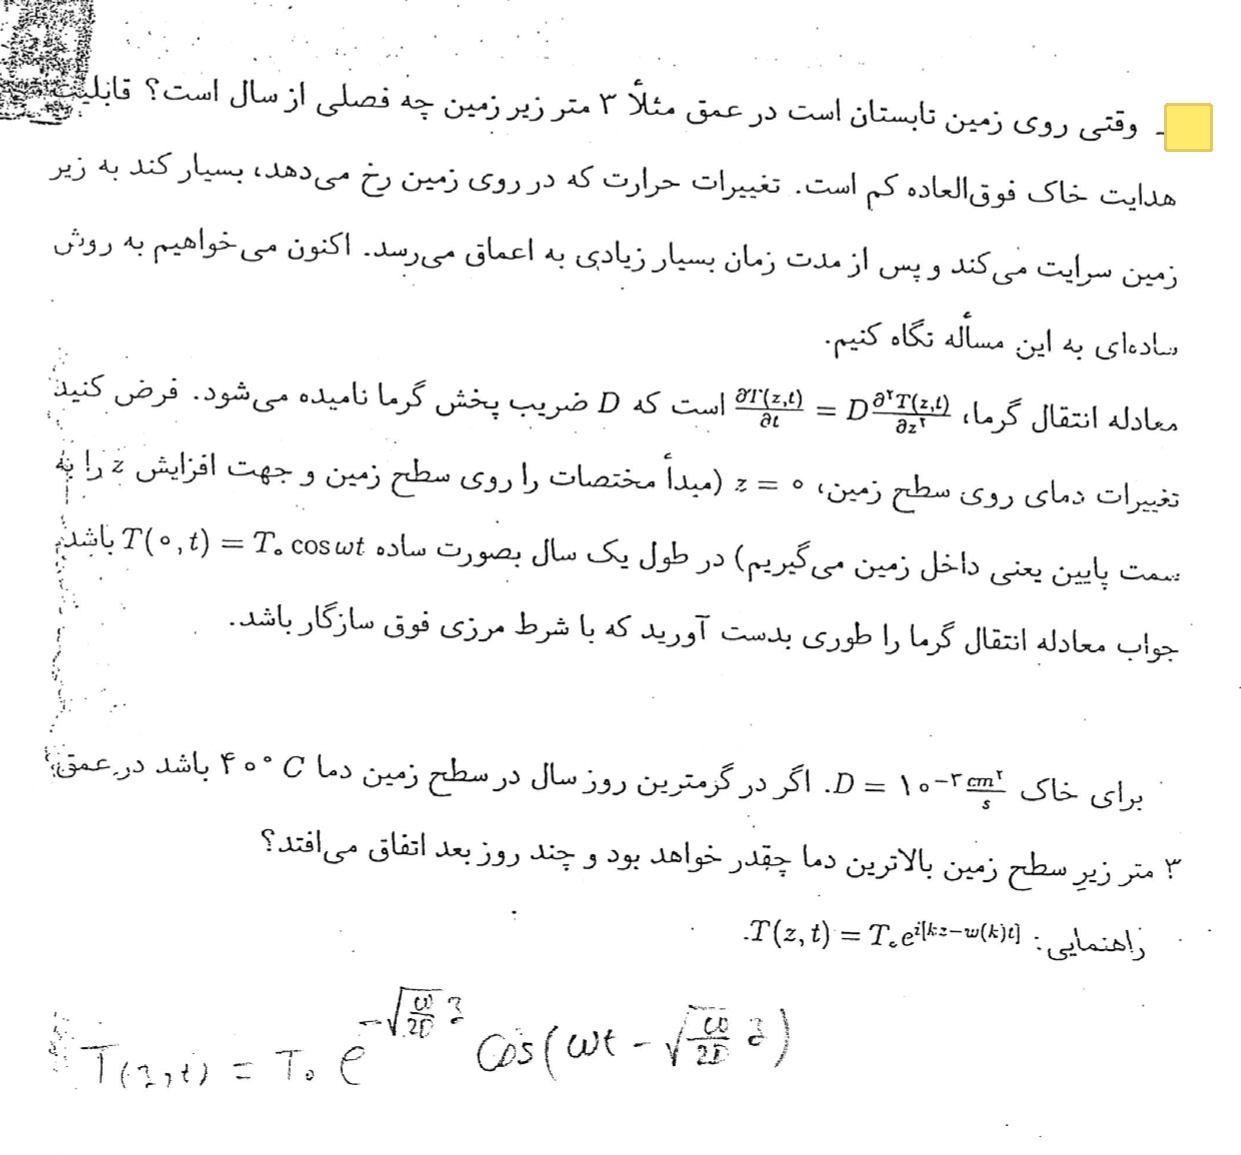 ـ وقتی روی زمین تابستان است در عمق مثلاً ۳ متر زیر زمین چه فصلی از سال است؟ قابلیت
هدایت خاک فوق‌العاده کم است. تغییرات حرارت که در روی زمین رخ می‌دهد، بسیار کند به زیر
زمین سرایت می‌کند و پس از مدت زمان بسیار زیادی به اعماق می‌رسد. اکنون می‌خواهیم به روش
ساده‌ای به این مسأله نگاه کنیم.
معادله انتقال گرما، ∂T(z,t)/∂t = D ∂²T(z,t)/∂z² است که D ضریب پخش گرما نامیده می‌شود. فرض کنید
تغییرات دمای روی سطح زمین، z = ۰ (مبدأ مختصات را روی سطح زمین و جهت افزایش z را به
سمت پایین یعنی داخل زمین می‌گیریم) در طول یک سال بصورت ساده T(۰,t) = T۰ cos wt باشد،
جواب معادله انتقال گرما را طوری بدست آورید که با شرط مرزی فوق سازگار باشد.
برای خاک D = ۱۰^-۲ cm²/s. اگر در گرمترین روز سال در سطح زمین دما ۴۰° C باشد در عمق
۳ متر زیر سطح زمین بالاترین دما چقدر خواهد بود و چند روز بعد اتفاق می‌افتد؟
راهنمایی: T(z,t) = T۰e^i[kz-w(k)t].
T(z,t) = T₀ e^-√(ω/2D) z Cos(ωt - √(ω/2D) z)